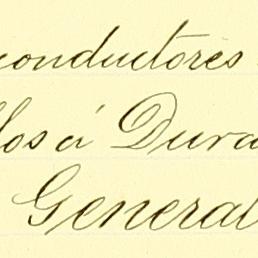 conductores
los á Dura
General